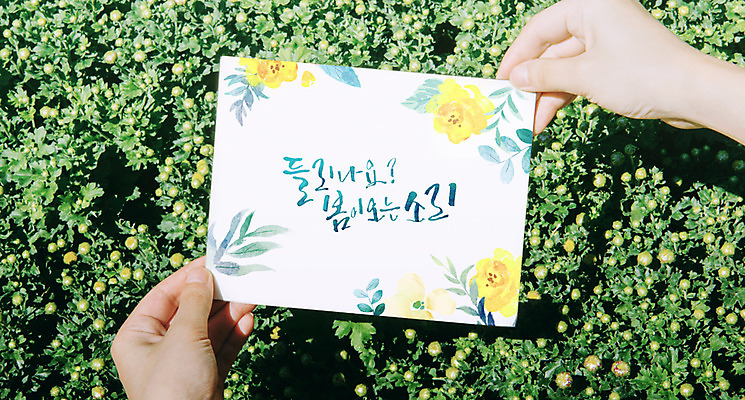 들리나요?
봄이오는 소리